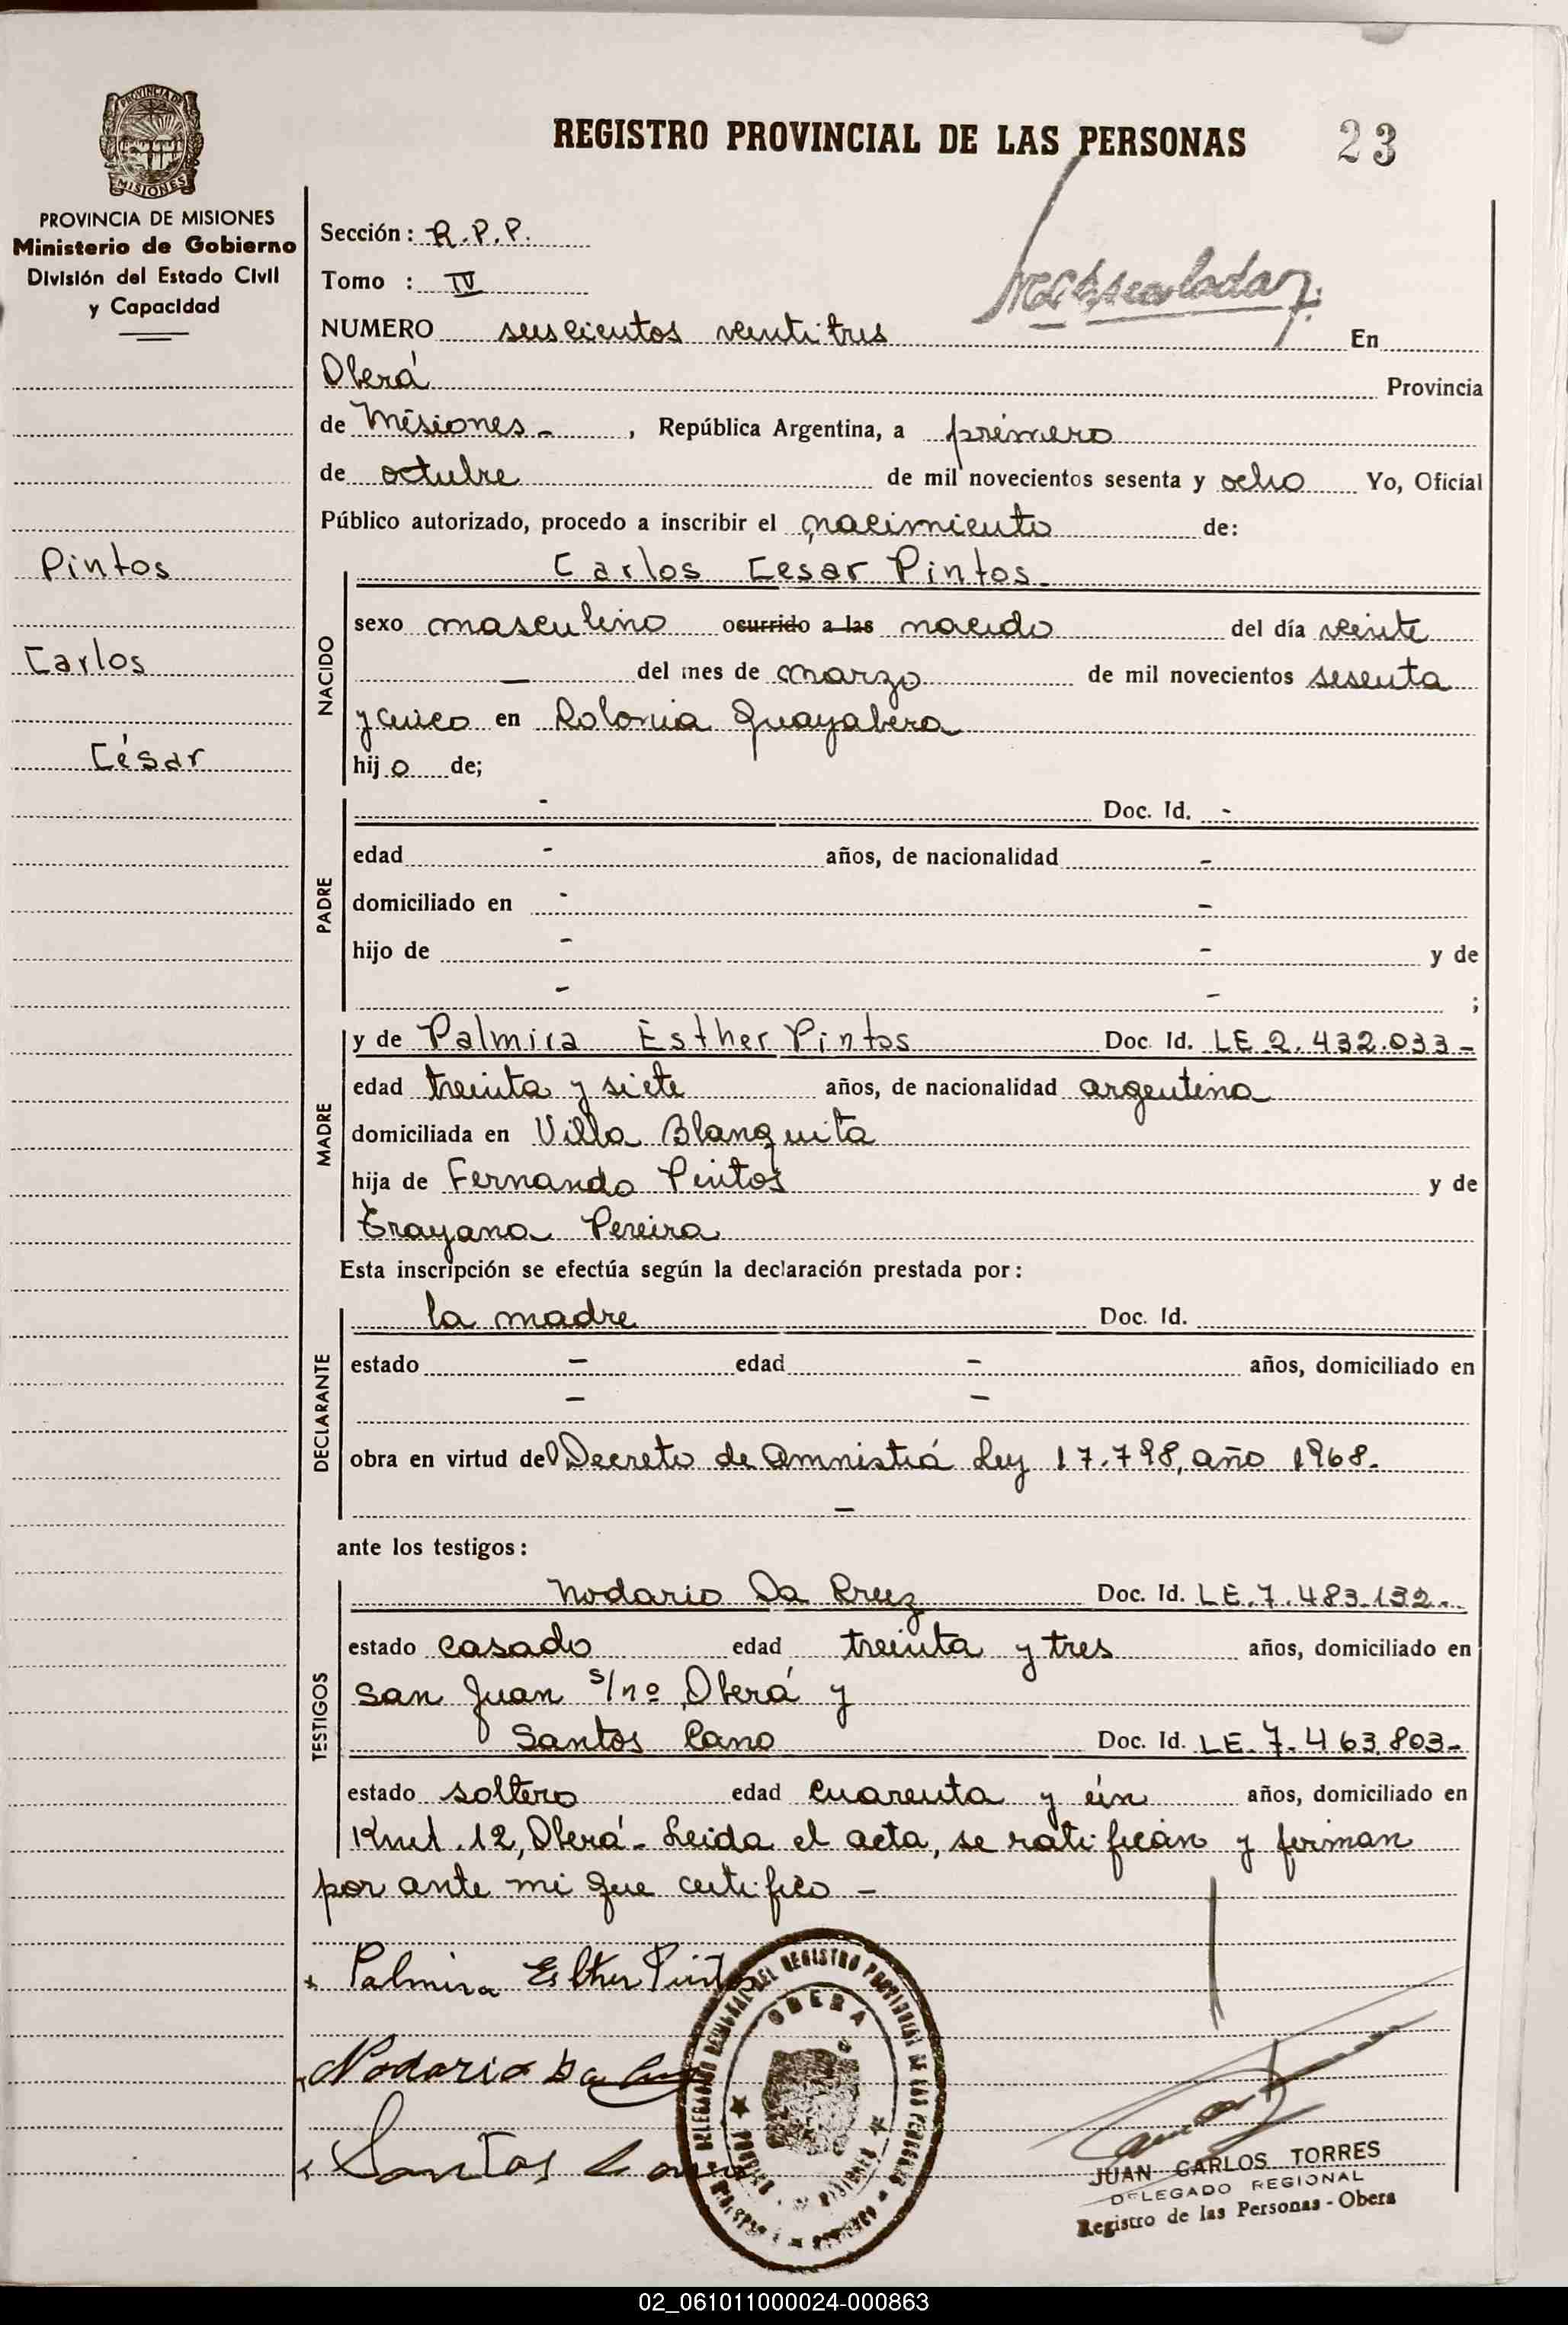 PROVINCIA DE
MISIONES
PROVINCIA DE MISIONES
Ministerio de Gobierno
División del Estado Civil
y Capacidad
REGISTRO PROVINCIAL DE LAS PERSONAS 23
Sección: R.P.P.
Tomo : IV
NUMERO seiscientos veintitres En
Oberá Provincia
de Misiones - , República Argentina, a primero
de octubre de mil novecientos sesenta y ocho Yo, Oficial
Público autorizado, procedo a inscribir el nacimiento de:
Pintos
Carlos
César
NACIDO
Carlos Cesar Pintos
sexo masculino ocurrido a las nacido del día veinte
— del mes de marzo de mil novecientos sesenta
y cinco en Colonia Guayabera
hijo de;
PADRE
- Doc. Id. -
edad - años, de nacionalidad -
domiciliado en - -
hijo de - - y de
- - ;
MADRE
y de Palmira Esther Pintos Doc. Id. LE 2.432.033-
edad treinta y siete años, de nacionalidad argentina
domiciliada en Villa Blanquita
hija de Fernando Pintos y de
Trayana Pereira
Esta inscripción se efectúa según la declaración prestada por:
DECLARANTE
la madre Doc. Id.
estado - edad - años, domiciliado en
- -
obra en virtud del Decreto de Amnistiá Ley 17.798, año 1968.
-
ante los testigos:
TESTIGOS
Nodario Da Cruz Doc. Id. LE.7.483.132-
estado casado edad treinta y tres años, domiciliado en
San Juan s/nº Oberá y
Santos Cano Doc. Id. LE. 7.463.803-
estado soltero edad cuarenta y un años, domiciliado en
Kmt. 12, Oberá - Leida el acta, se ratifican y firman
por ante mi que certifico -
Palmira Esther Pintos
Nodario Da Cruz
Santos Cano
DELEGACION REGIONAL DEL REGISTRO PROVINCIAL DE LAS PERSONAS
OBERA
MISIONES
JUAN CARLOS TORRES
DELEGADO REGIONAL
Registro de las Personas - Obera
02_061011000024-000863